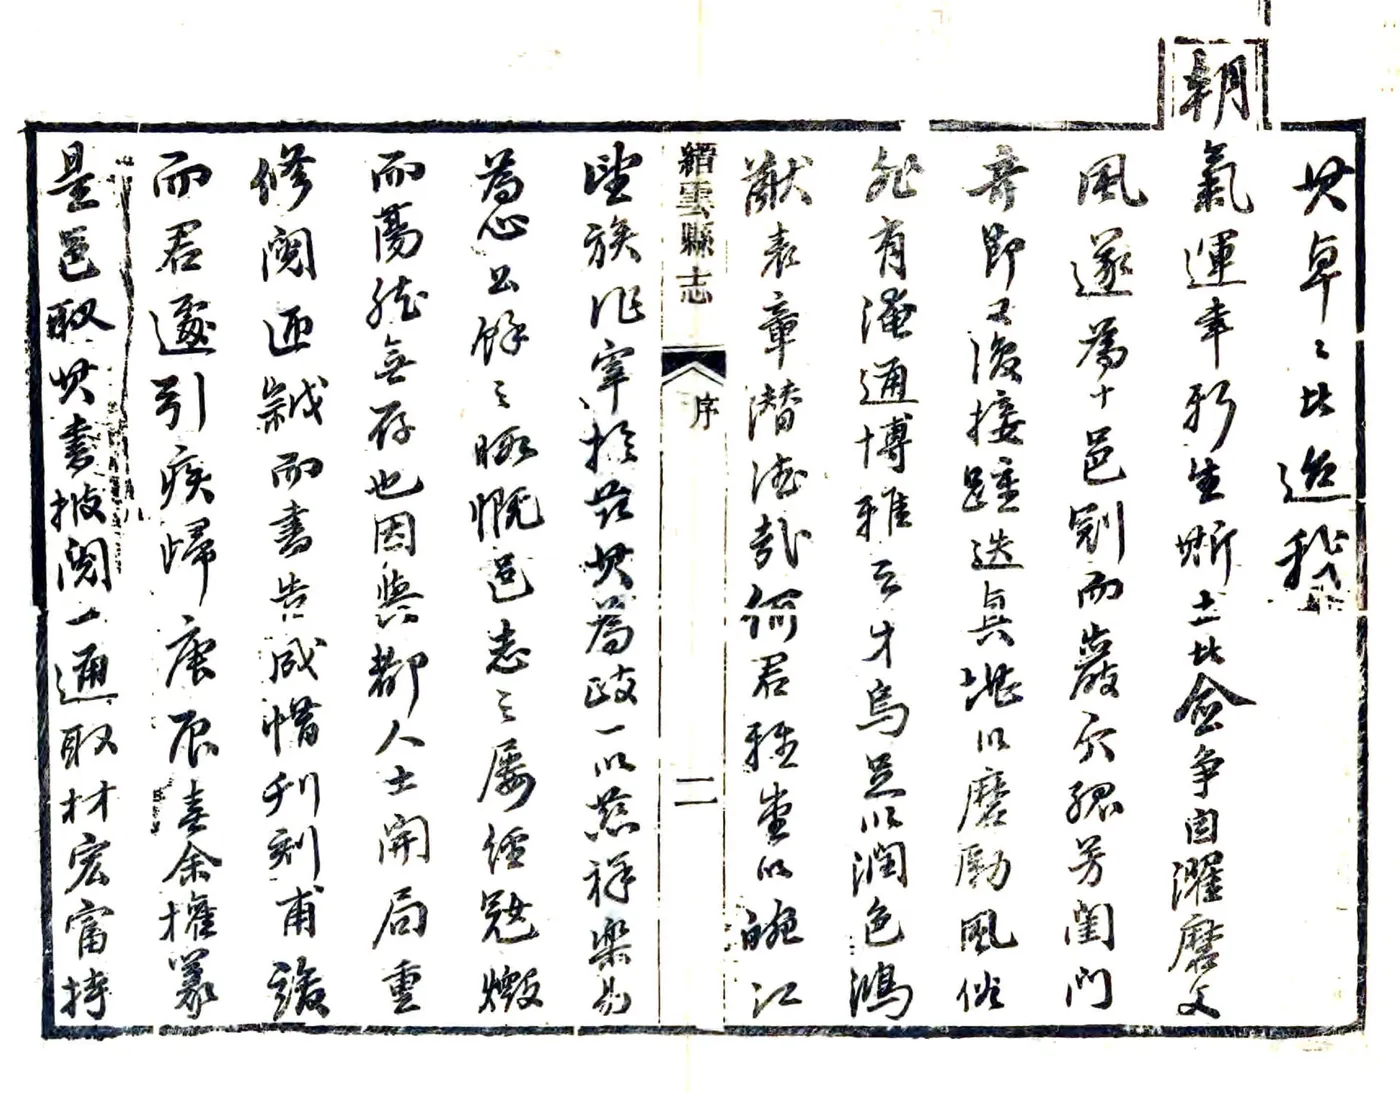 其卓卓比迩我
朝
氣運聿新生斯土者僉爭自濯磨文
風遂為十邑冠而巖穴孤芳閨門
奇節又復接踵迭興堪以磨勵風俗
非有淹通博雅之才烏足以潤色鴻
猷表章潛德哉何君雅堂以皖江
縉雲縣志
序
二
望族作宰於茲其為政一以慈祥樂易
為心公餘之暇慨邑志之屢經寇燬
而蕩然無存也因與都人士開局重
修閱匝歲而書告成惜刊刻甫竣
而君遽引疾歸庚辰春余權篆
是邑取其書披閱一通取材宏富持